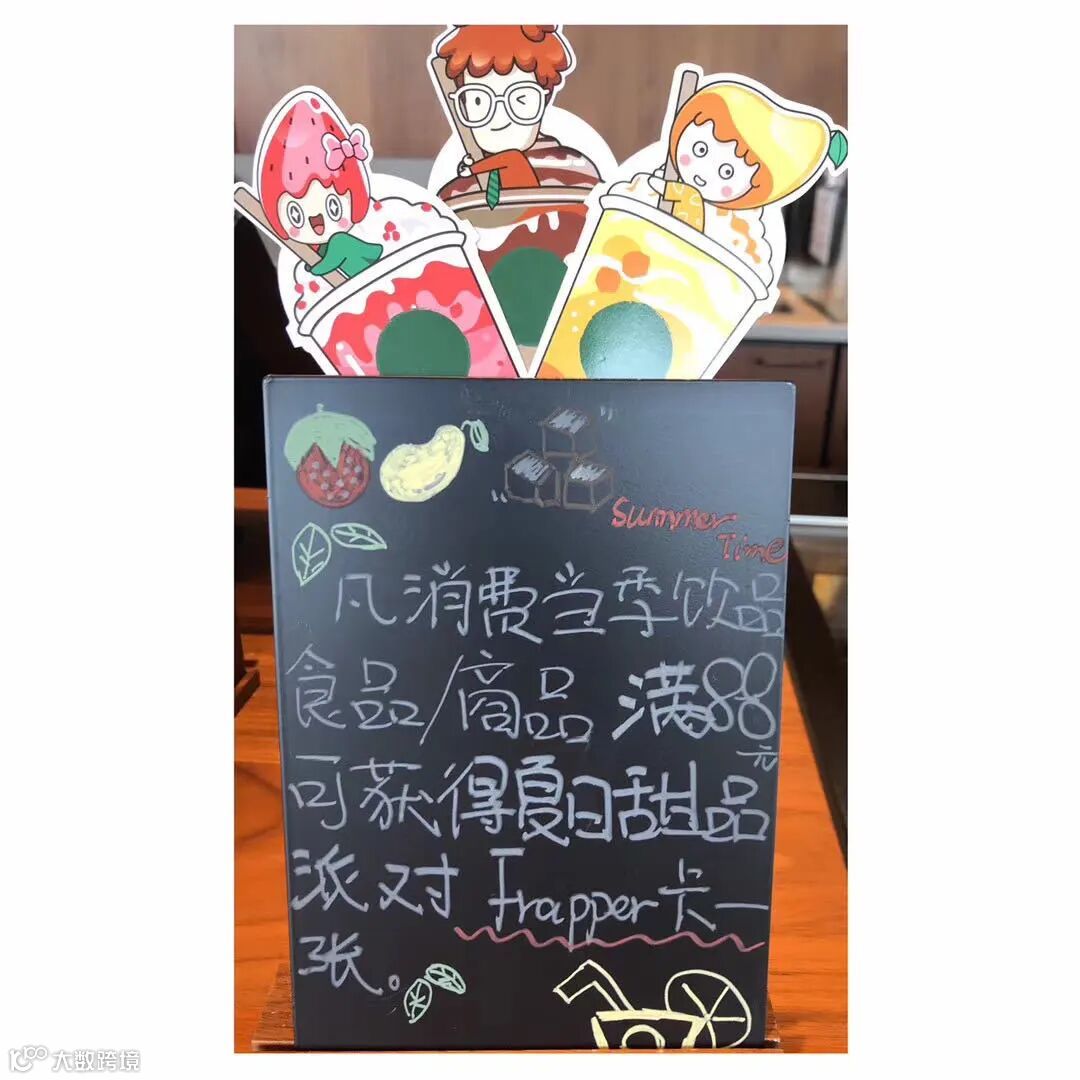 Summer
Time
凡消费当季饮品
食品/商品 满88
元
可获得夏日甜品
派对 Frapper卡一
张。
大数跨境